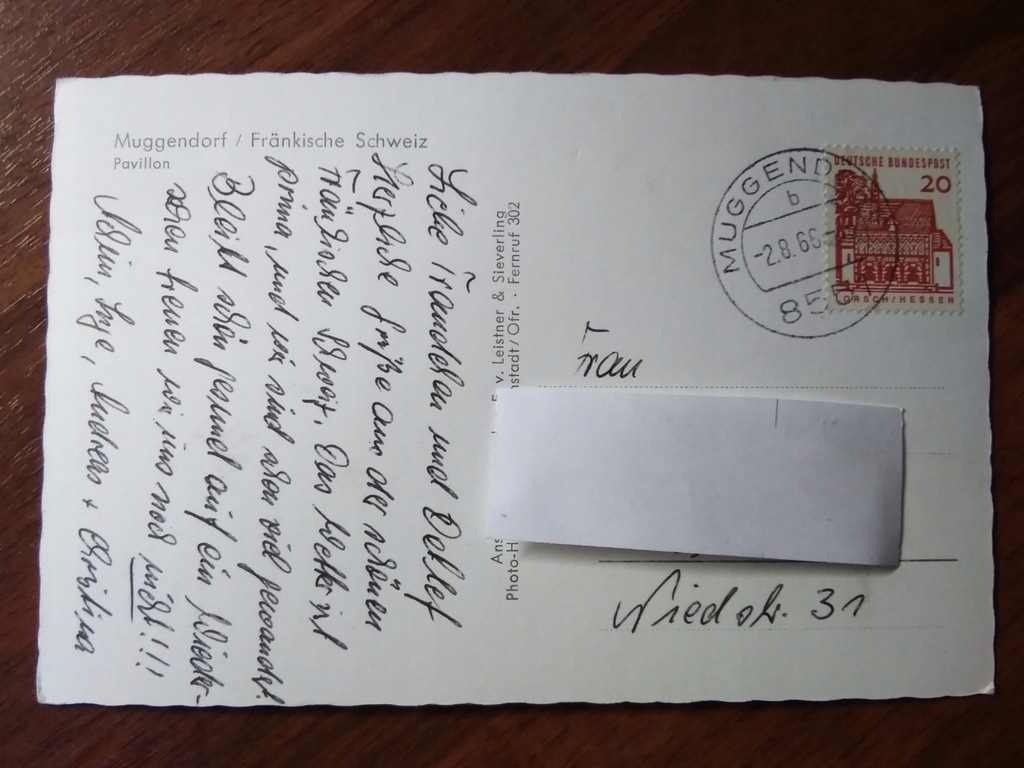 Muggendorf / Fränkische Schweiz
Pavillon
Liebe Frauchen und Detlef
Herzliche Grüße aus der schönen
Fränkischen Schweiz. Das Wetter ist
prima, und wir sind schon viel gewandert.
Bleibt schön gesund auf ein Wieder-
sehen freuen wir uns noch nicht!!!
Inge, Andreas + Christina
v. Leistner & Sieverling
nstadt/Ofr. · Fernruf 302
Ans
Photo-H
MUGGEND
b
-2.8.66-
855
DEUTSCHE BUNDESPOST
20
LORSCH/HESSEN
Frau
Niedstr. 31